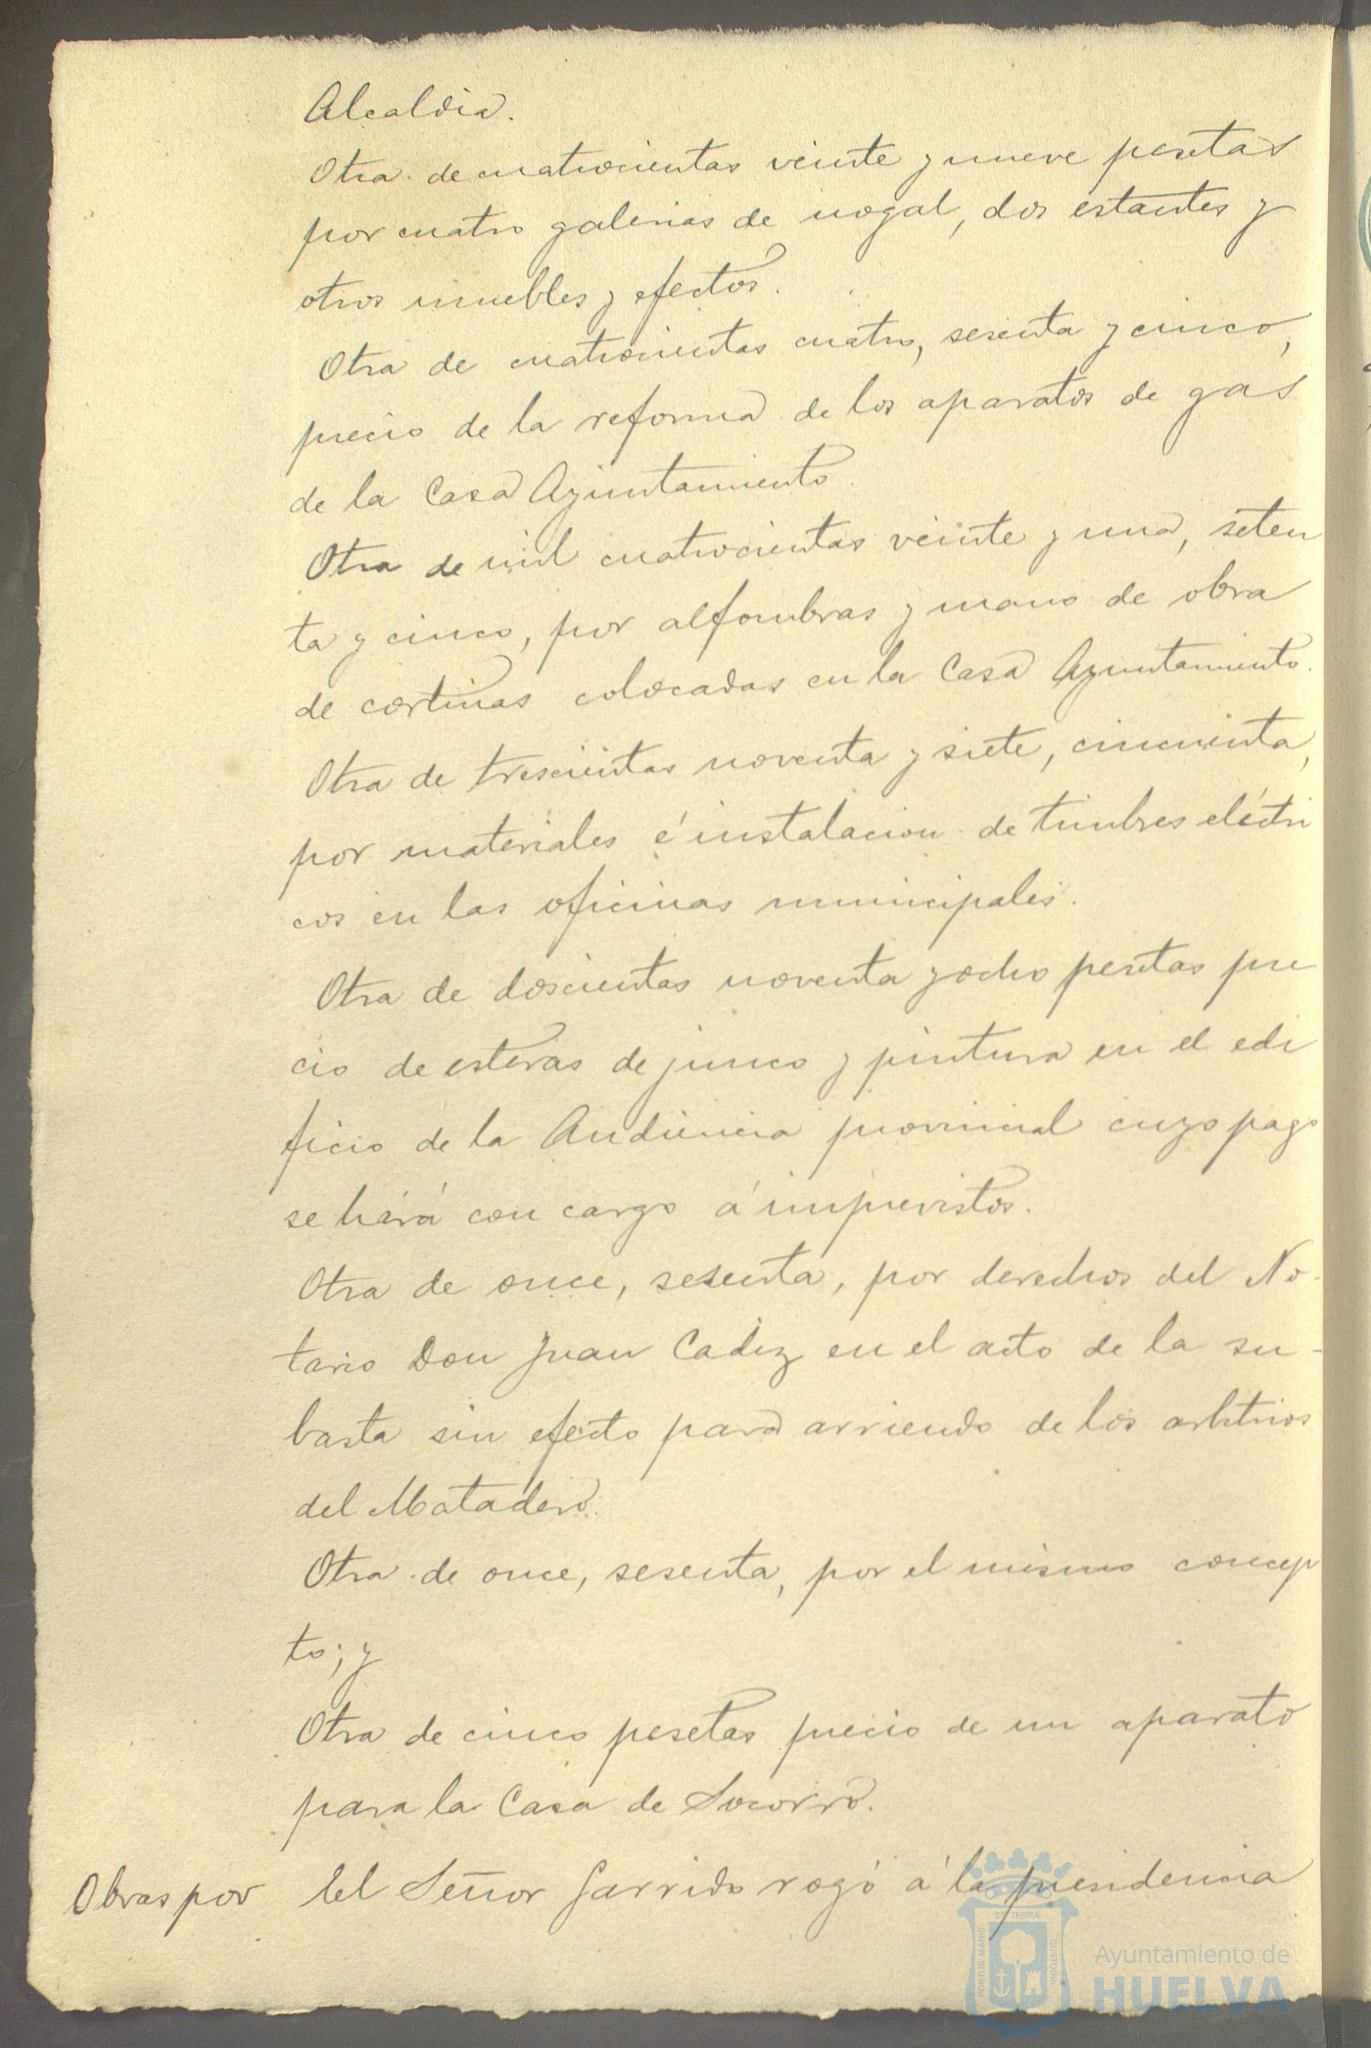 Alcaldia.
Otra de cuatrocientas veinte y nueve pesetas
por cuatro galerias de nogal, dos estantes y
otros muebles y efectos.
Otra de cuatrocientas cuatro, sesenta y cinco,
precio de la reforma de los aparatos de gas
de la Casa Ayuntamiento.
Otra de mil cuatrocientas veinte y una, seten
ta y cinco, por alfombras y mano de obra
de cortinas colocadas en la Casa Ayuntamiento.
Otra de trescientas noventa y siete, cincuenta,
por materiales é instalacion de timbres eléctri
cos en las oficinas municipales.
Otra de doscientas noventa y ocho pesetas pre
cio de esteras de junco y pintura en el edi
ficio de la Audiencia provincial cuyo pago
se hará con cargo á imprevistos.
Otra de once, sesenta, por derechos del No-
tario Don Juan Cadiz en el acto de la su-
basta sin efecto para arriendo de los arbitrios
del Matadero.
Otra de once, sesenta, por el mismo concep
to; y
Otra de cinco pesetas precio de un aparato
para la Casa de Socorro.
Obras por El Señor Garrido rogó á la presidencia
PORTUS MARIS ET TERRAE CUSTODIA
Ayuntamiento de
HUELVA